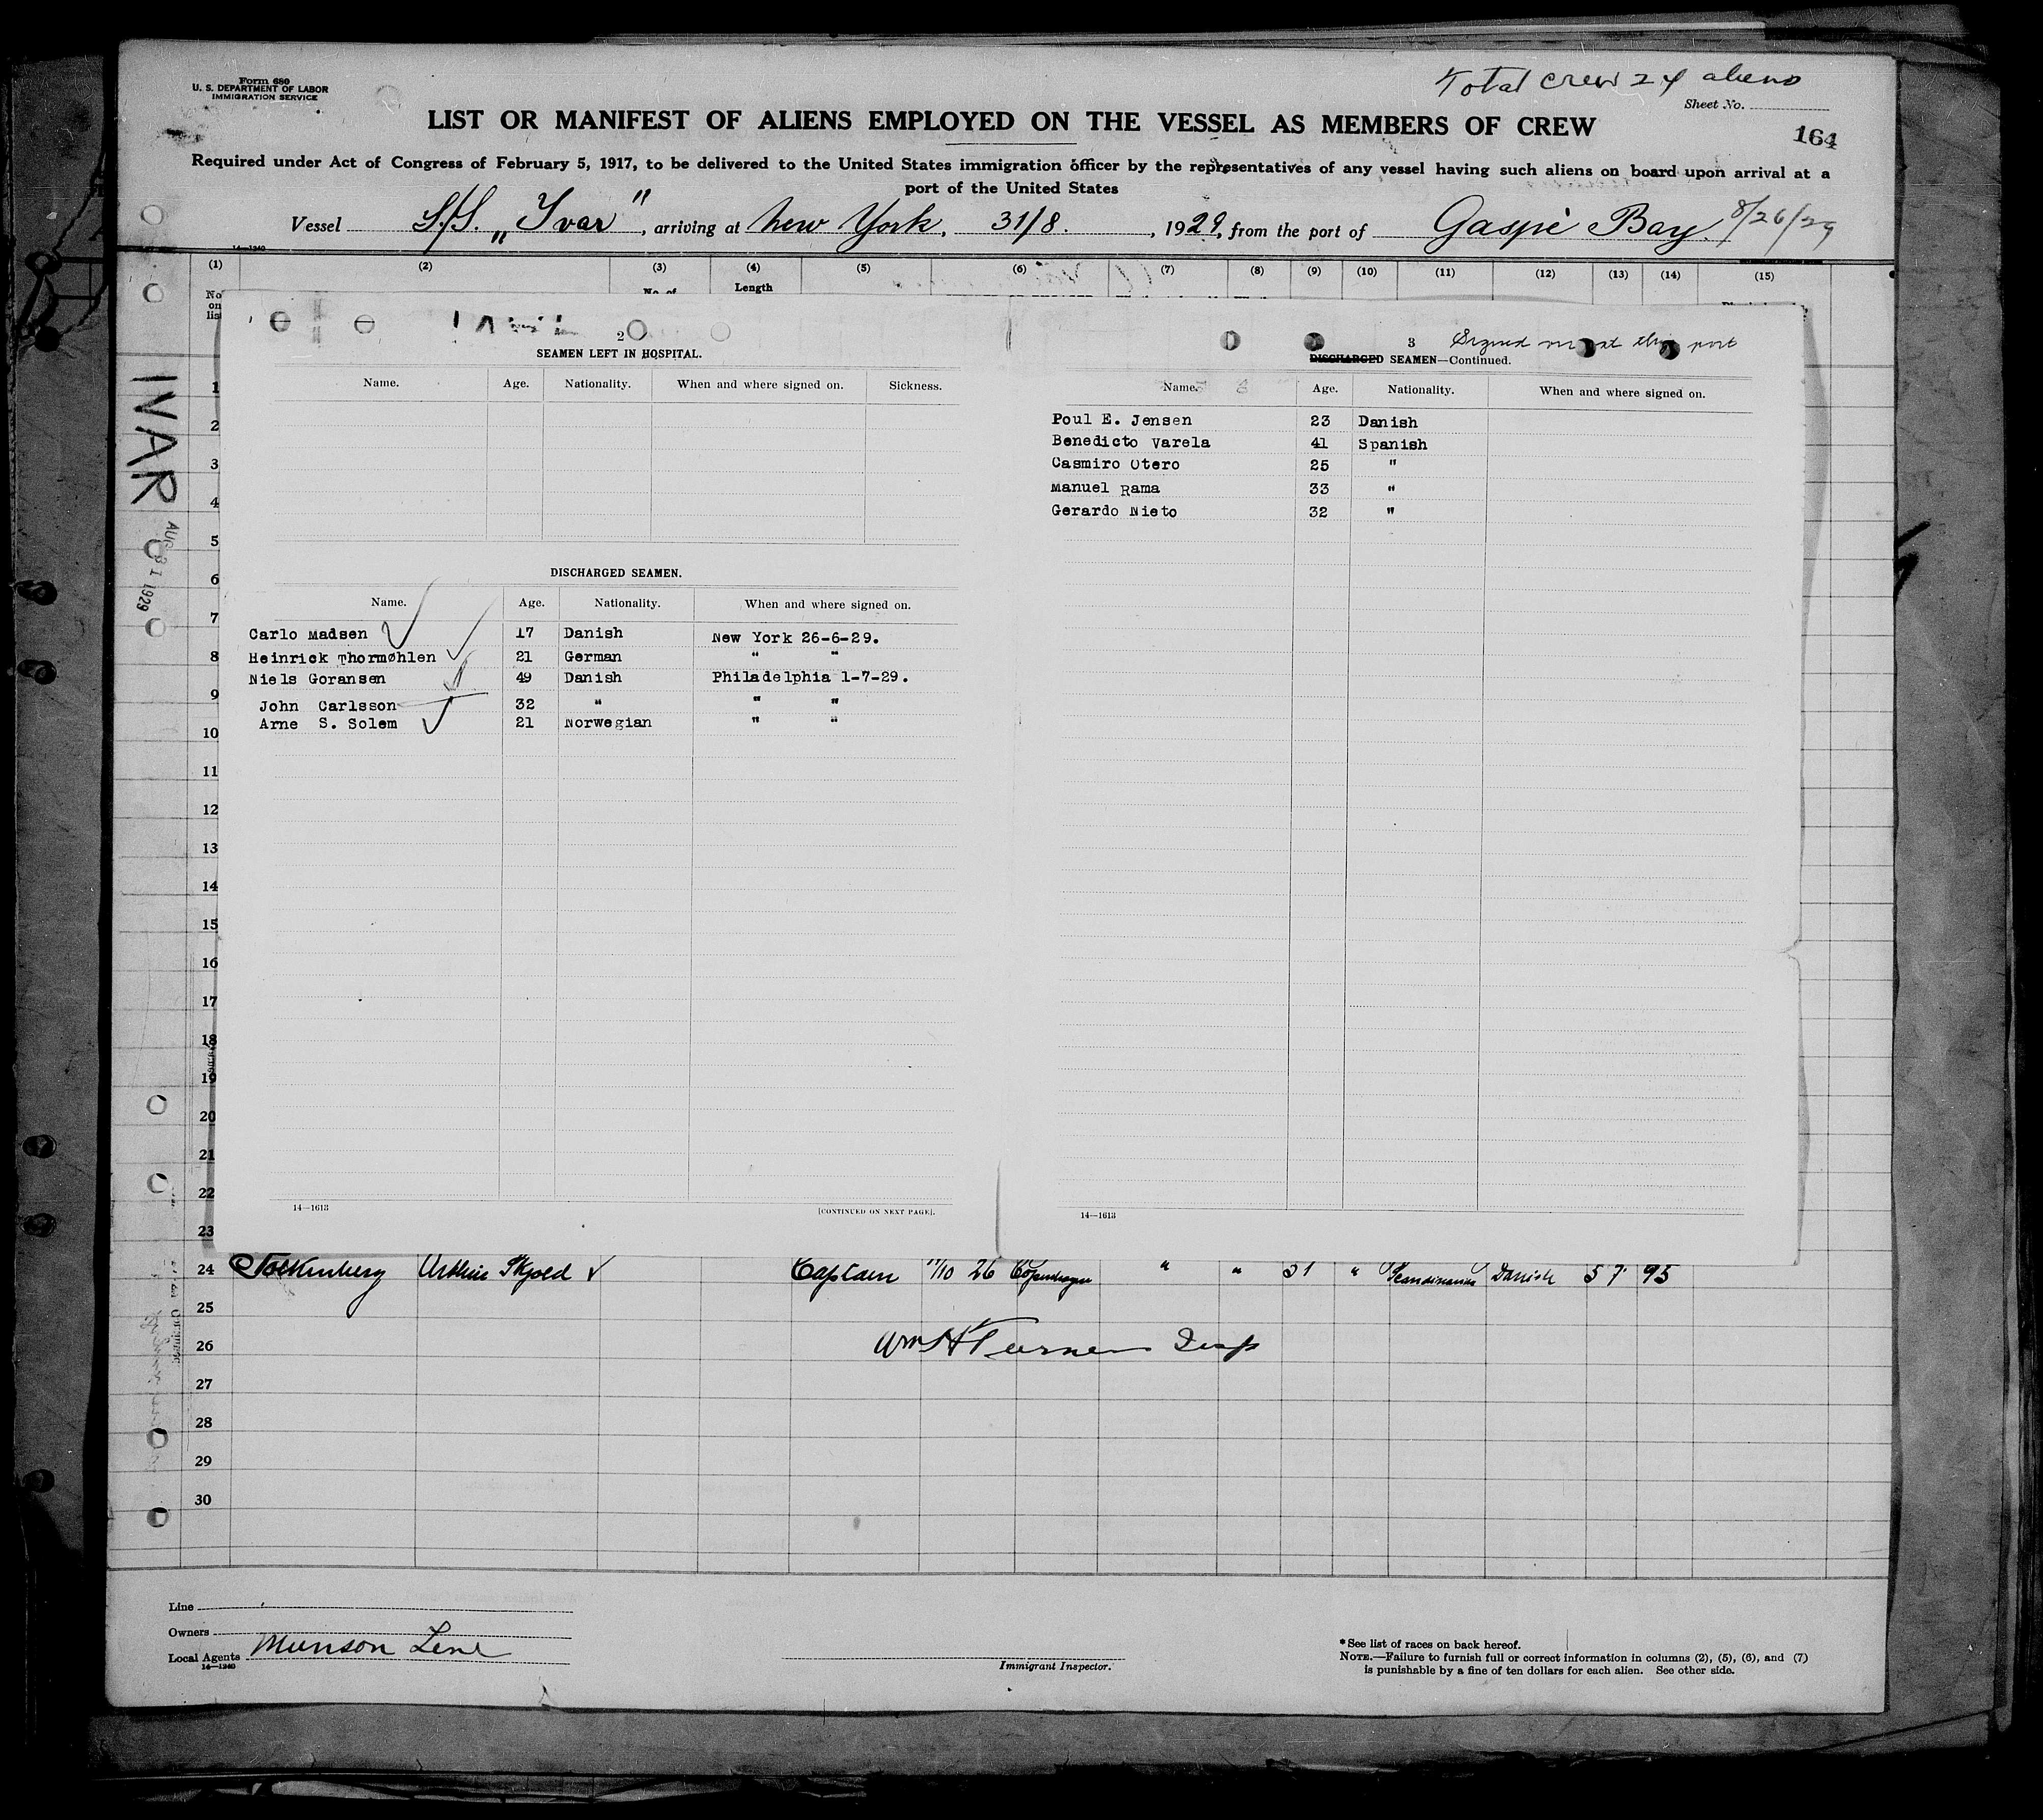 Form 680
U. S. DEPARTMENT OF LABOR
IMMIGRATION SERVICE
Total crew 24 aliens
Sheet No.
164
LIST OR MANIFEST OF ALIENS EMPLOYED ON THE VESSEL AS MEMBERS OF CREW
Required under Act of Congress of February 5, 1917, to be delivered to the United States immigration officer by the representatives of any vessel having such aliens on board upon arrival at a
port of the United States
Vessel S/S. „Ivar", arriving at New York, 31/8., 1929, from the port of Gaspé Bay. 8/26/29
14—1240
(1) (2) (3) (4) (5) (6) (7) (8) (9) (10) (11) (12) (13) (14) (15)
No. on list
No. of
Length
IVAR
AUG 31 1929
2
SEAMEN LEFT IN HOSPITAL.
Name. Age. Nationality. When and where signed on. Sickness.
DISCHARGED SEAMEN.
Name. Age. Nationality. When and where signed on.
Carlo Madsen 17 Danish New York 26-6-29.
Heinrick Thormøhlen 21 German " "
Niels Goransen 49 Danish Philadelphia 1-7-29.
John Carlsson 32 " " "
Arne S. Solem 21 Norwegian " "
14—1613
[CONTINUED ON NEXT PAGE].
3
Signed on at this port
DISCHARGED SEAMEN—Continued.
Name. Age. Nationality. When and where signed on.
Poul E. Jensen 23 Danish
Benedicto Varela 41 Spanish
Casmiro Otero 25 "
Manuel Rama 33 "
Gerardo Nieto 32 "
14—1613
1
2
3
4
5
6
7
8
9
10
11
12
13
14
15
16
17
18
19
20
21
22
23
24 Arthur Skjold Captain 11/10 26 Copenhagen " " 31 " Scandinavia Danish 5 7 95
25
26 Wm H Turner Insp
27
28
29
30
Line
Owners
Local Agents Munson Line
14—1240
Immigrant Inspector.
* See list of races on back hereof.
NOTE.—Failure to furnish full or correct information in columns (2), (5), (6), and (7)
is punishable by a fine of ten dollars for each alien. See other side.